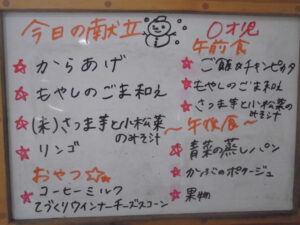 今日の献立
からあげ
もやしのごま和え
(未)さつま芋と小松菜
のみそ汁
リンゴ
おやつ
コーヒーミルク
てづくりウインナーチーズスコーン
0才児
午前食
ご飯&チキンピカタ
もやしのごま和え
さつま芋と小松菜の
みそ汁
〜午後食〜
青菜の蒸しパン
かぶのポタージュ
果物